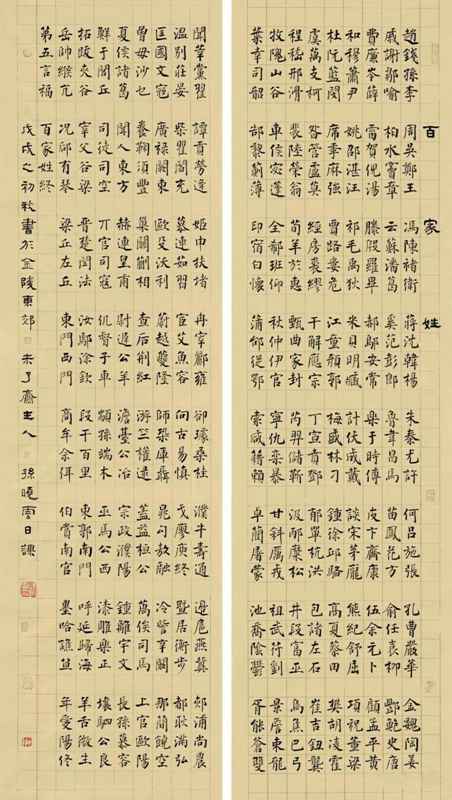 百家姓
趙錢孫李 周吳鄭王 馮陳褚衛 蔣沈韓楊 朱秦尤許 何呂施張 孔曹嚴華 金魏陶姜
戚謝鄒喻 柏水竇章 云蘇潘葛 奚范彭郎 魯韋昌馬 苗鳳花方 俞任袁柳 酆鮑史唐
費廉岑薛 雷賀倪湯 滕殷羅畢 郝鄔安常 樂于時傅 皮卞齊康 伍余元卜 顧孟平黃
和穆蕭尹 姚邵湛汪 祁毛禹狄 米貝明臧 計伏成戴 談宋茅龐 熊紀舒屈 項祝董梁
杜阮藍閔 席季麻強 賈路婁危 江童顏郭 梅盛林刁 鍾徐邱駱 高夏蔡田 樊胡凌霍
虞萬支柯 昝管盧莫 經房裘繆 干解應宗 丁宣賁鄧 郁單杭洪 包諸左石 崔吉鈕龔
程嵇邢滑 裴陸榮翁 荀羊於惠 甄曲家封 芮羿儲靳 汲邴糜松 井段富巫 烏焦巴弓
牧隗山谷 車侯宓蓬 全郗班仰 秋仲伊宮 寧仇欒暴 甘鈄厲戎 祖武符劉 景詹束龍
葉幸司韶 郜黎薊薄 印宿白懷 蒲邰從鄂 索咸籍賴 卓藺屠蒙 池喬陰鬱 胥能蒼雙
聞莘黨翟 譚貢勞逄 姬申扶堵 冉宰酈雍 郤璩桑桂 濮牛壽通 邊扈燕冀 郟浦尚農
溫別莊晏 柴瞿閻充 慕連茹習 宦艾魚容 向古易慎 戈廖庾終 暨居衡步 都耿滿弘
匡國文寇 廣祿闕東 歐殳沃利 蔚越夔隆 師鞏厙聶 晁勾敖融 冷訾辛闞 那簡饒空
曾毋沙乜 養鞠須豐 巢關蒯相 查后荊紅 游竺權逯 蓋益桓公 萬俟司馬 上官歐陽
夏侯諸葛 聞人東方 赫連皇甫 尉遲公羊 澹臺公冶 宗政濮陽 鍾離宇文 長孫慕容
鮮于閭丘 司徒司空 亓官司寇 仉督子車 顓孫端木 巫馬公西 漆雕樂正 壤駟公良
拓跋夾谷 宰父谷梁 晉楚閆法 汝鄢涂欽 段干百里 東郭南門 呼延歸海 羊舌微生
岳帥緱亢 況郈有琴 梁丘左丘 東門西門 商牟佘佴 伯賞南宮 墨哈譙笪 年愛陽佟
第五言福 百家姓終
戊戌之初秋書於金陵東郊 未了齋主人 孫曉雲日課